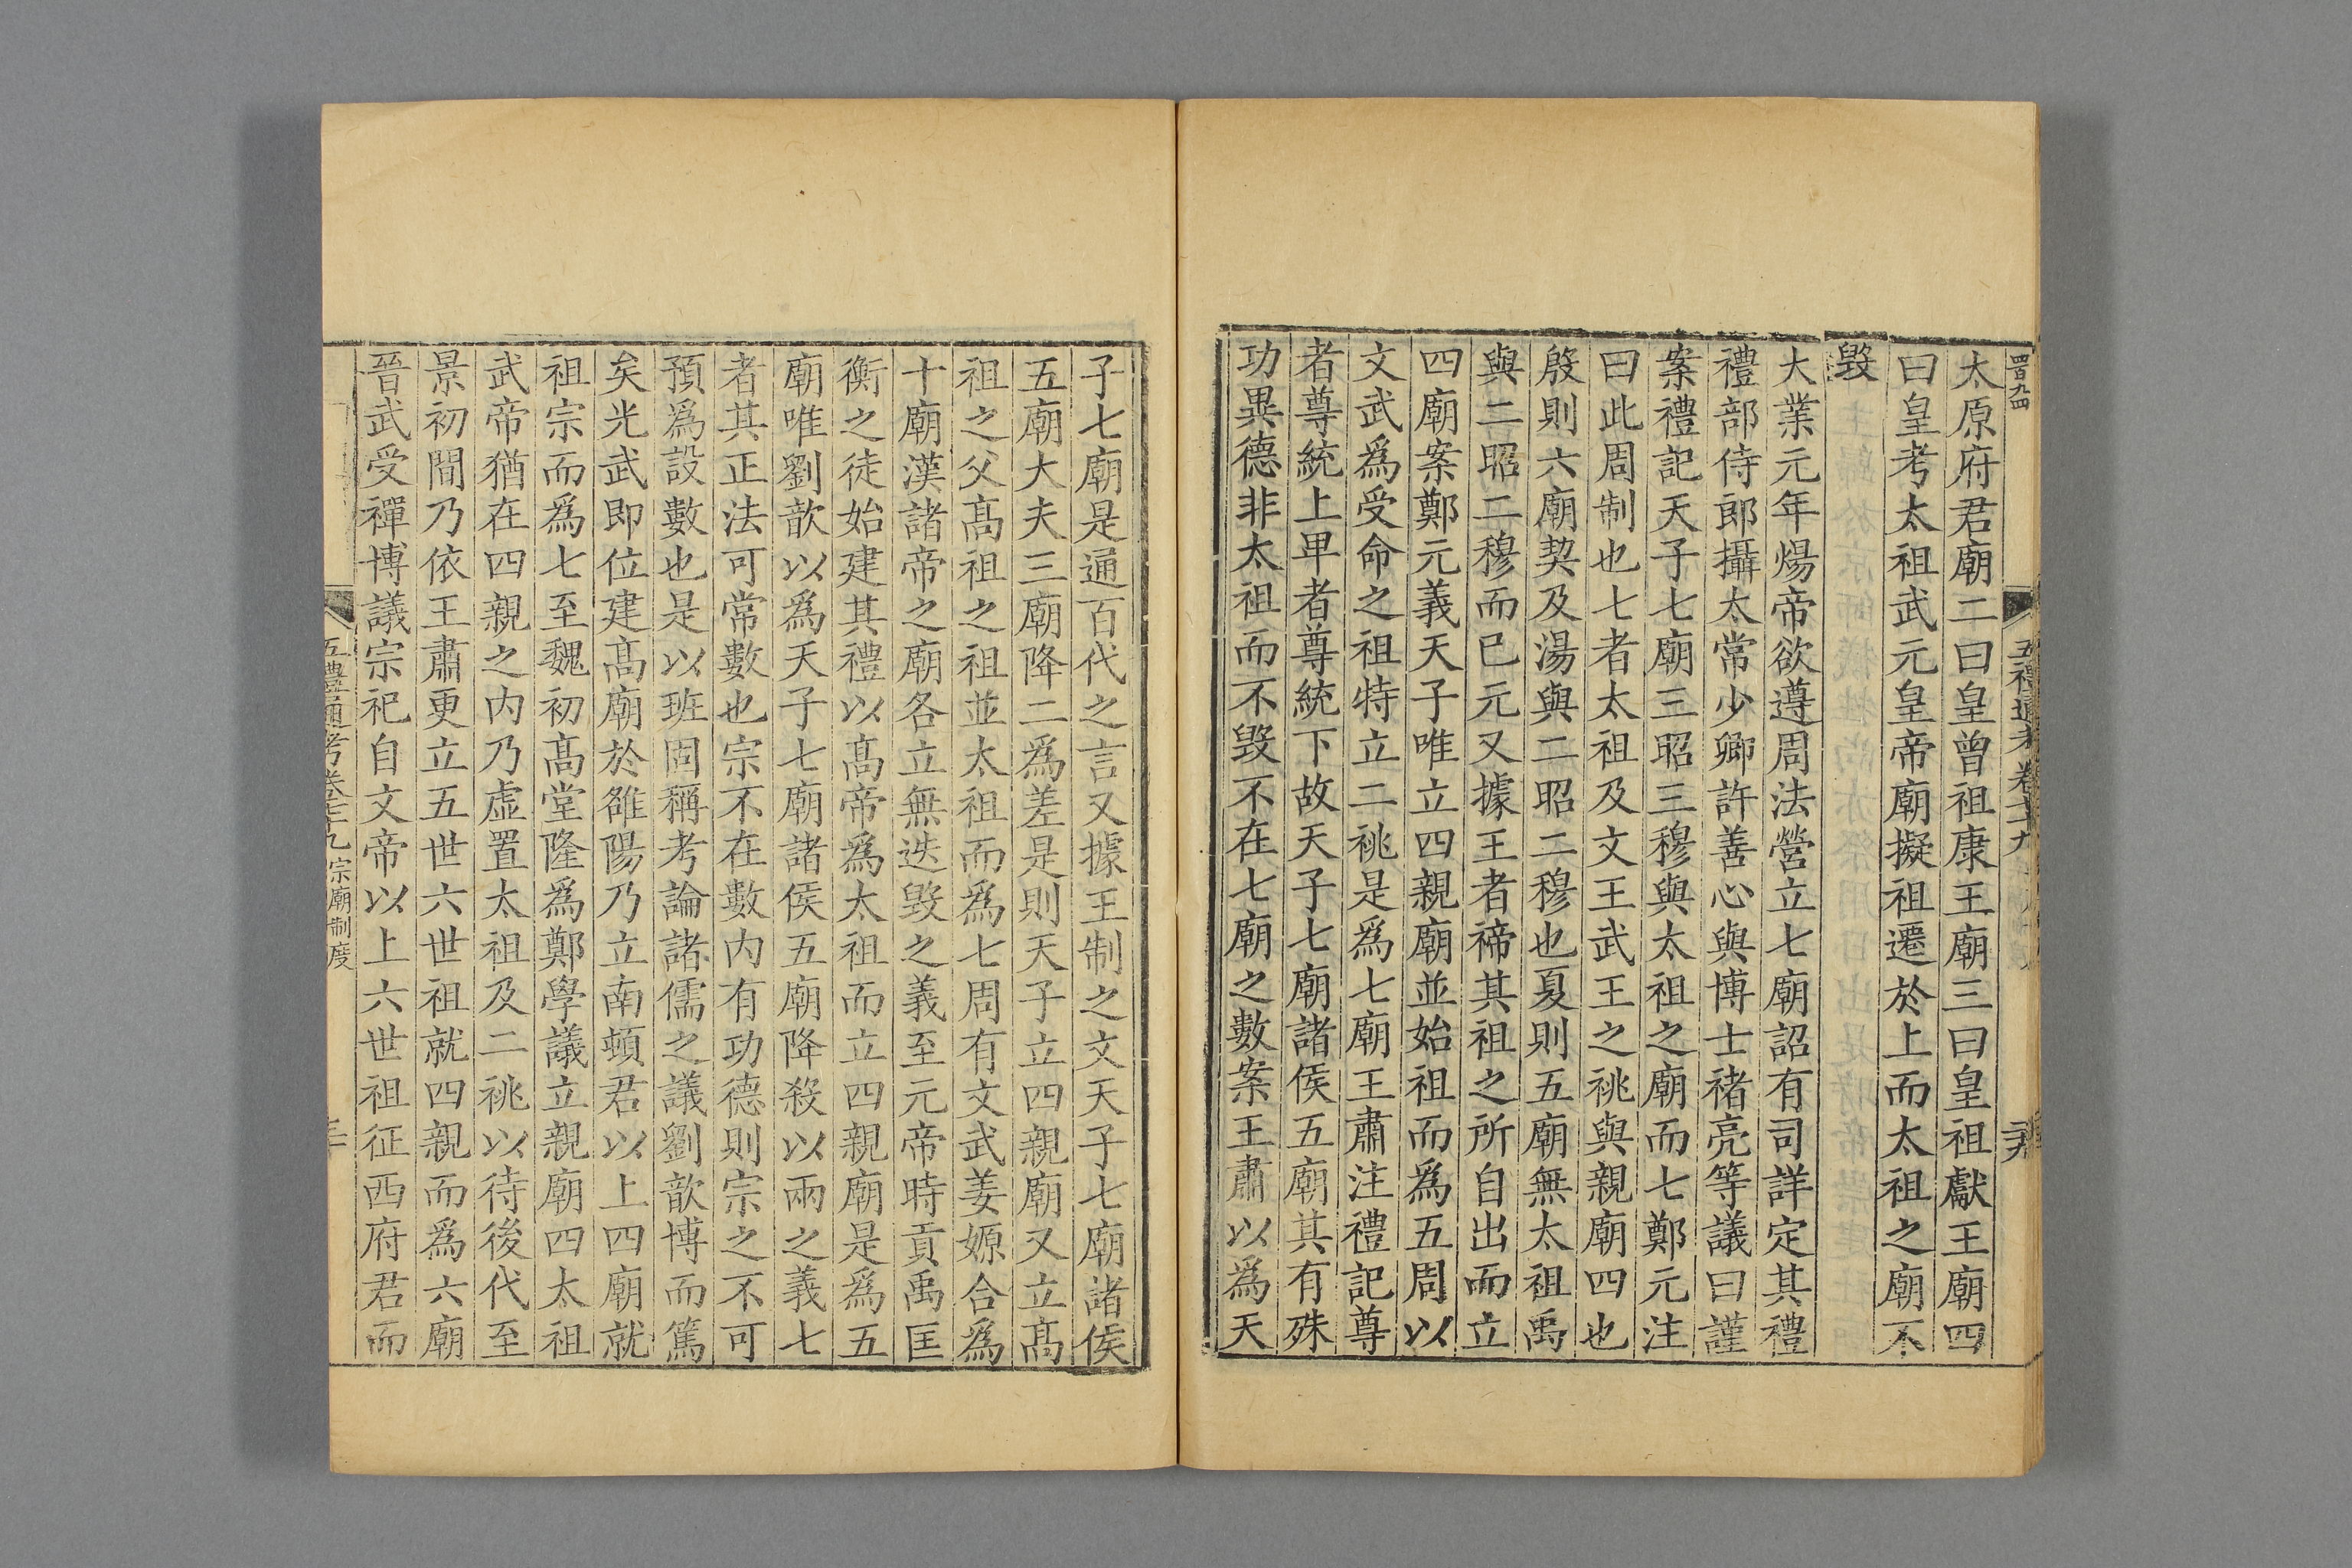 太原府君廟二曰皇曾祖康王廟三曰皇祖獻王廟四
曰皇考太祖武元皇帝廟擬祖遷於上而太祖之廟不
毀
大業元年煬帝欲遵周法營立七廟詔有司詳定其禮
禮部侍郎攝太常少卿許善心與博士褚亮等議曰謹
案禮記天子七廟三昭三穆與太祖之廟而七鄭元注
曰此周制也七者太祖及文王武王之祧與親廟四也
殷則六廟契及湯與二昭二穆也夏則五廟無太祖禹
與二昭二穆而已元又據王者禘其祖之所自出而立
四廟案鄭元義天子唯立四親廟並始祖而爲五周以
文武爲受命之祖特立二祧是爲七廟王肅注禮記尊
者尊統上卑者尊統下故天子七廟諸侯五廟其有殊
功異德非太祖而不毀不在七廟之數案王肅以爲天
子七廟是通百代之言又據王制之文天子七廟諸侯
五廟大夫三廟降二爲差是則天子立四親廟又立高
祖之父高祖之祖並太祖而爲七周有文武姜嫄合爲
十廟漢諸帝之廟各立無迭毀之義至元帝時貢禹匡
衡之徒始建其禮以高帝爲太祖而立四親廟是爲五
廟唯劉歆以爲天子七廟諸侯五廟降殺以兩之義七
者其正法可常數也宗不在數内有功德則宗之不可
預爲設數也是以班固稱考論諸儒之議劉歆博而篤
矣光武即位建高廟於雒陽乃立南頓君以上四廟就
祖宗而爲七至魏初高堂隆爲鄭學議立親廟四太祖
武帝猶在四親之内乃虛置太祖及二祧以待後代至
景初間乃依王肅更立五世六世祖就四親而爲六廟
晉武受禪博議宗祀自文帝以上六世祖征西府君而
五禮通考卷七十九 宗廟制度